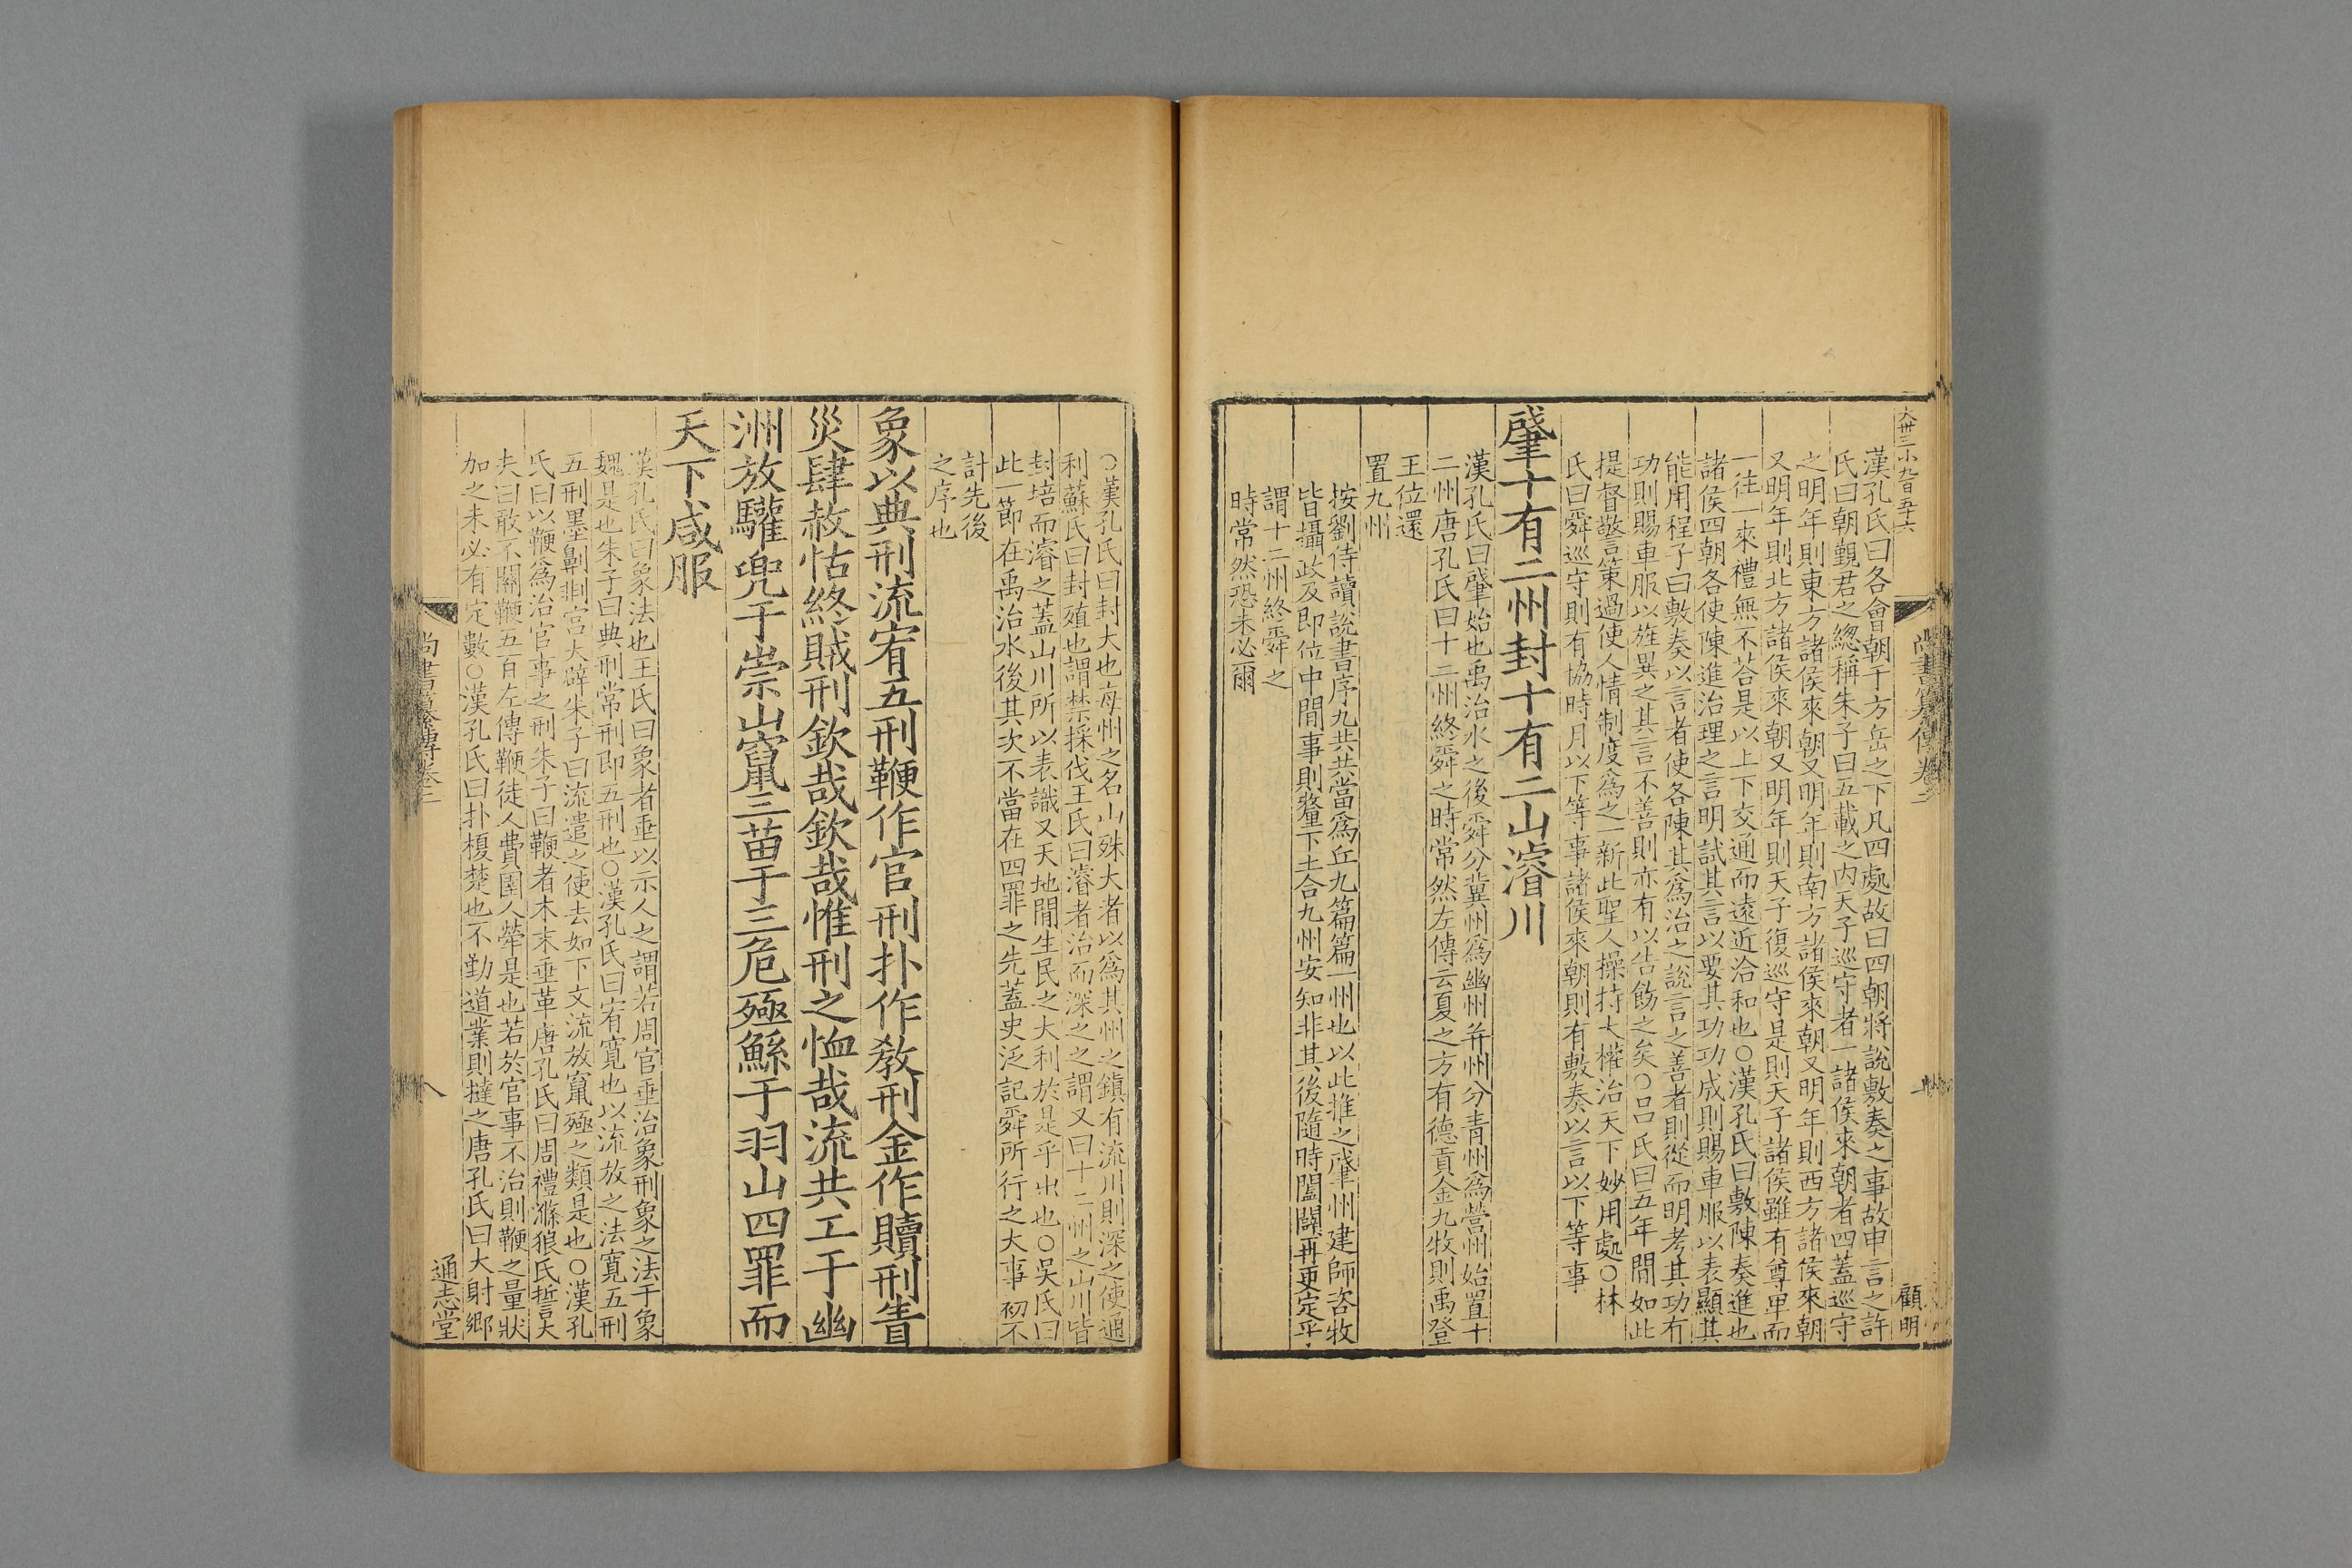 大卅三小九百五十六
尚書纂傳卷二
顧明
漢孔氏曰各會朝于方岳之下凡四處故曰四朝將說敷奏之事故申言之許
氏曰朝覲君之緫稱朱子曰五載之内天子巡守者一諸侯來朝者四蓋巡守
之明年則東方諸侯來朝又明年則南方諸侯來朝又明年則西方諸侯來朝
又明年則北方諸侯來朝又明年則天子復巡守是則天子諸侯雖有尊卑而
一往一來禮無不荅是以上下交通而遠近洽和也○漢孔氏曰敷陳奏進也
諸侯四朝各使陳進治理之言明試其言以要其功功成則賜車服以表顯其
能用程子曰敷奏以言者使各陳其爲治之說言之善者則從而明考其功有
功則賜車服以旌異之其言不善則亦有以告飭之矣○呂氏曰五年間如此
提督警策過使人情制度爲之一新此聖人操持大權治天下妙用處○林
氏曰舜巡守則有協時月以下等事諸侯來朝則有敷奏以言以下等事
肇十有二州封十有二山濬川
漢孔氏曰肇始也禹治水之後舜分冀州爲幽州并州分青州爲營州始置十
二州唐孔氏曰十二州終舜之時常然左傳云夏之方有德貢金九牧則禹登
王位還
置九州
按劉侍讀說書序九共共當爲丘九篇篇一州也以此推之肇州建師咨牧
皆攝政及即位中間事則釐下土合九州安知非其後隨時闔闢再更定乎
謂十二州終舜之
時常然恐未必爾
○漢孔氏曰封大也每州之名山殊大者以爲其州之鎮有流川則深之使通
利蘇氏曰封殖也謂禁採伐王氏曰濬者治而深之之謂又曰十二州之山川皆
封培而濬之蓋山川所以表識又天地間生民之大利於是乎出也○吳氏曰
此一節在禹治水後其次不當在四罪之先蓋史泛記舜所行之大事初不
計先後
之序也
象以典刑流宥五刑鞭作官刑扑作教刑金作贖刑眚
災肆赦怙終賊刑欽哉欽哉惟刑之恤哉流共工于幽
洲放驩兜于崇山竄三苗于三危殛鯀于羽山四罪而
天下咸服
漢孔氏曰象法也王氏曰象者垂以示人之謂若周官垂治象刑象之法于象
魏是也朱子曰典刑常刑即五刑也○漢孔氏曰宥寬也以流放之法寬五刑
五刑墨劓剕宮大辟朱子曰流遣之使去如下文流放竄殛之類是也○漢孔
氏曰以鞭爲治官事之刑朱子曰鞭者木末垂革唐孔氏曰周禮滌狼氏誓大
夫曰敢不關鞭五百左傳鞭徒人費圉人犖是也若於官事不治則鞭之量狀
加之未必有定數○漢孔氏曰扑榎楚也不勤道業則撻之唐孔氏曰大射鄉
尚書纂傳卷二
八
通志堂